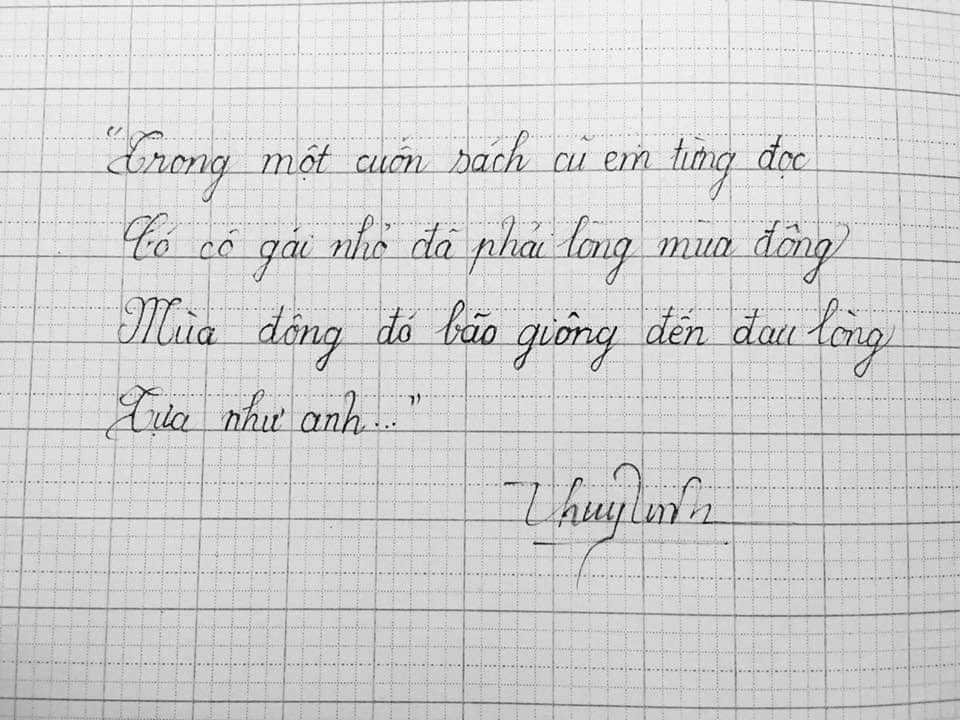 "Trong một cuốn sách cũ em từng đọc
Có cô gái nhỏ đã phải lòng mùa đông
Mùa đông đó bão giông đến đau lòng
Tựa như anh..."
Thuylinh